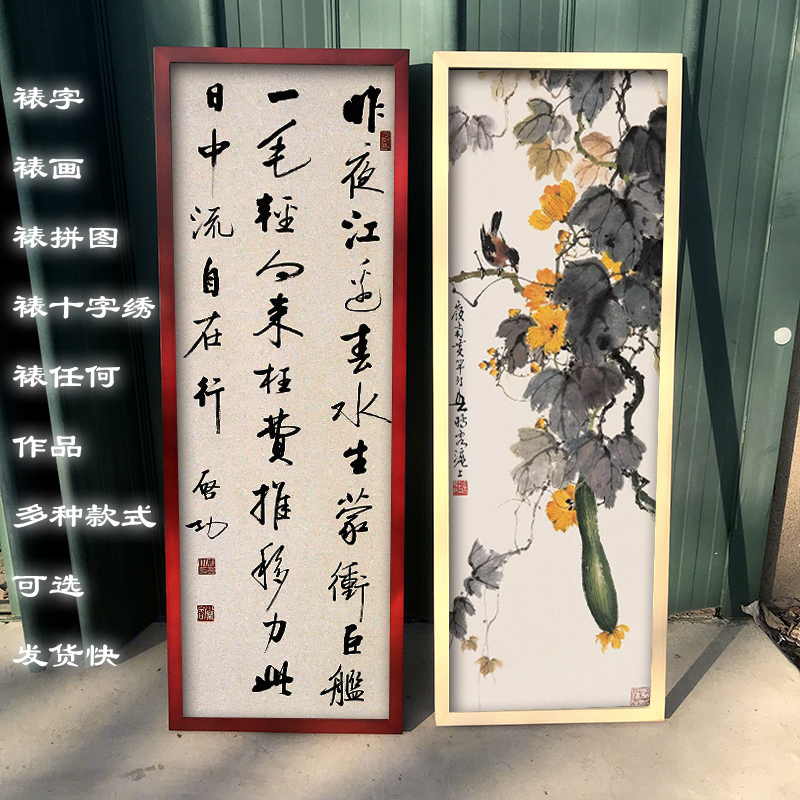 裱字
裱画
裱拼图
裱十字绣
裱任何
作品
多种款式
可选
发货快
昨夜江边春水生蒙衝巨艦
一毛輕向来枉費推移力此
日中流自在行
启功